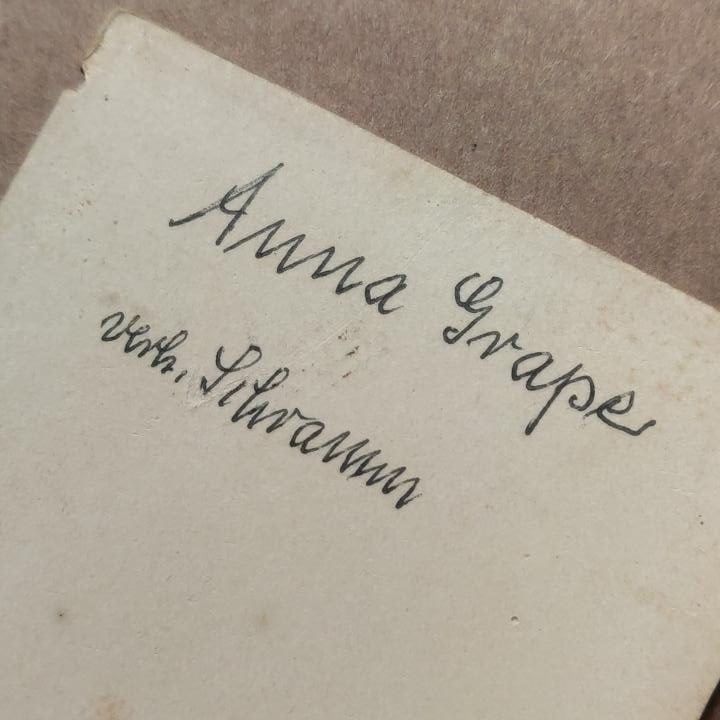 Anna Grape
verh. Schramm